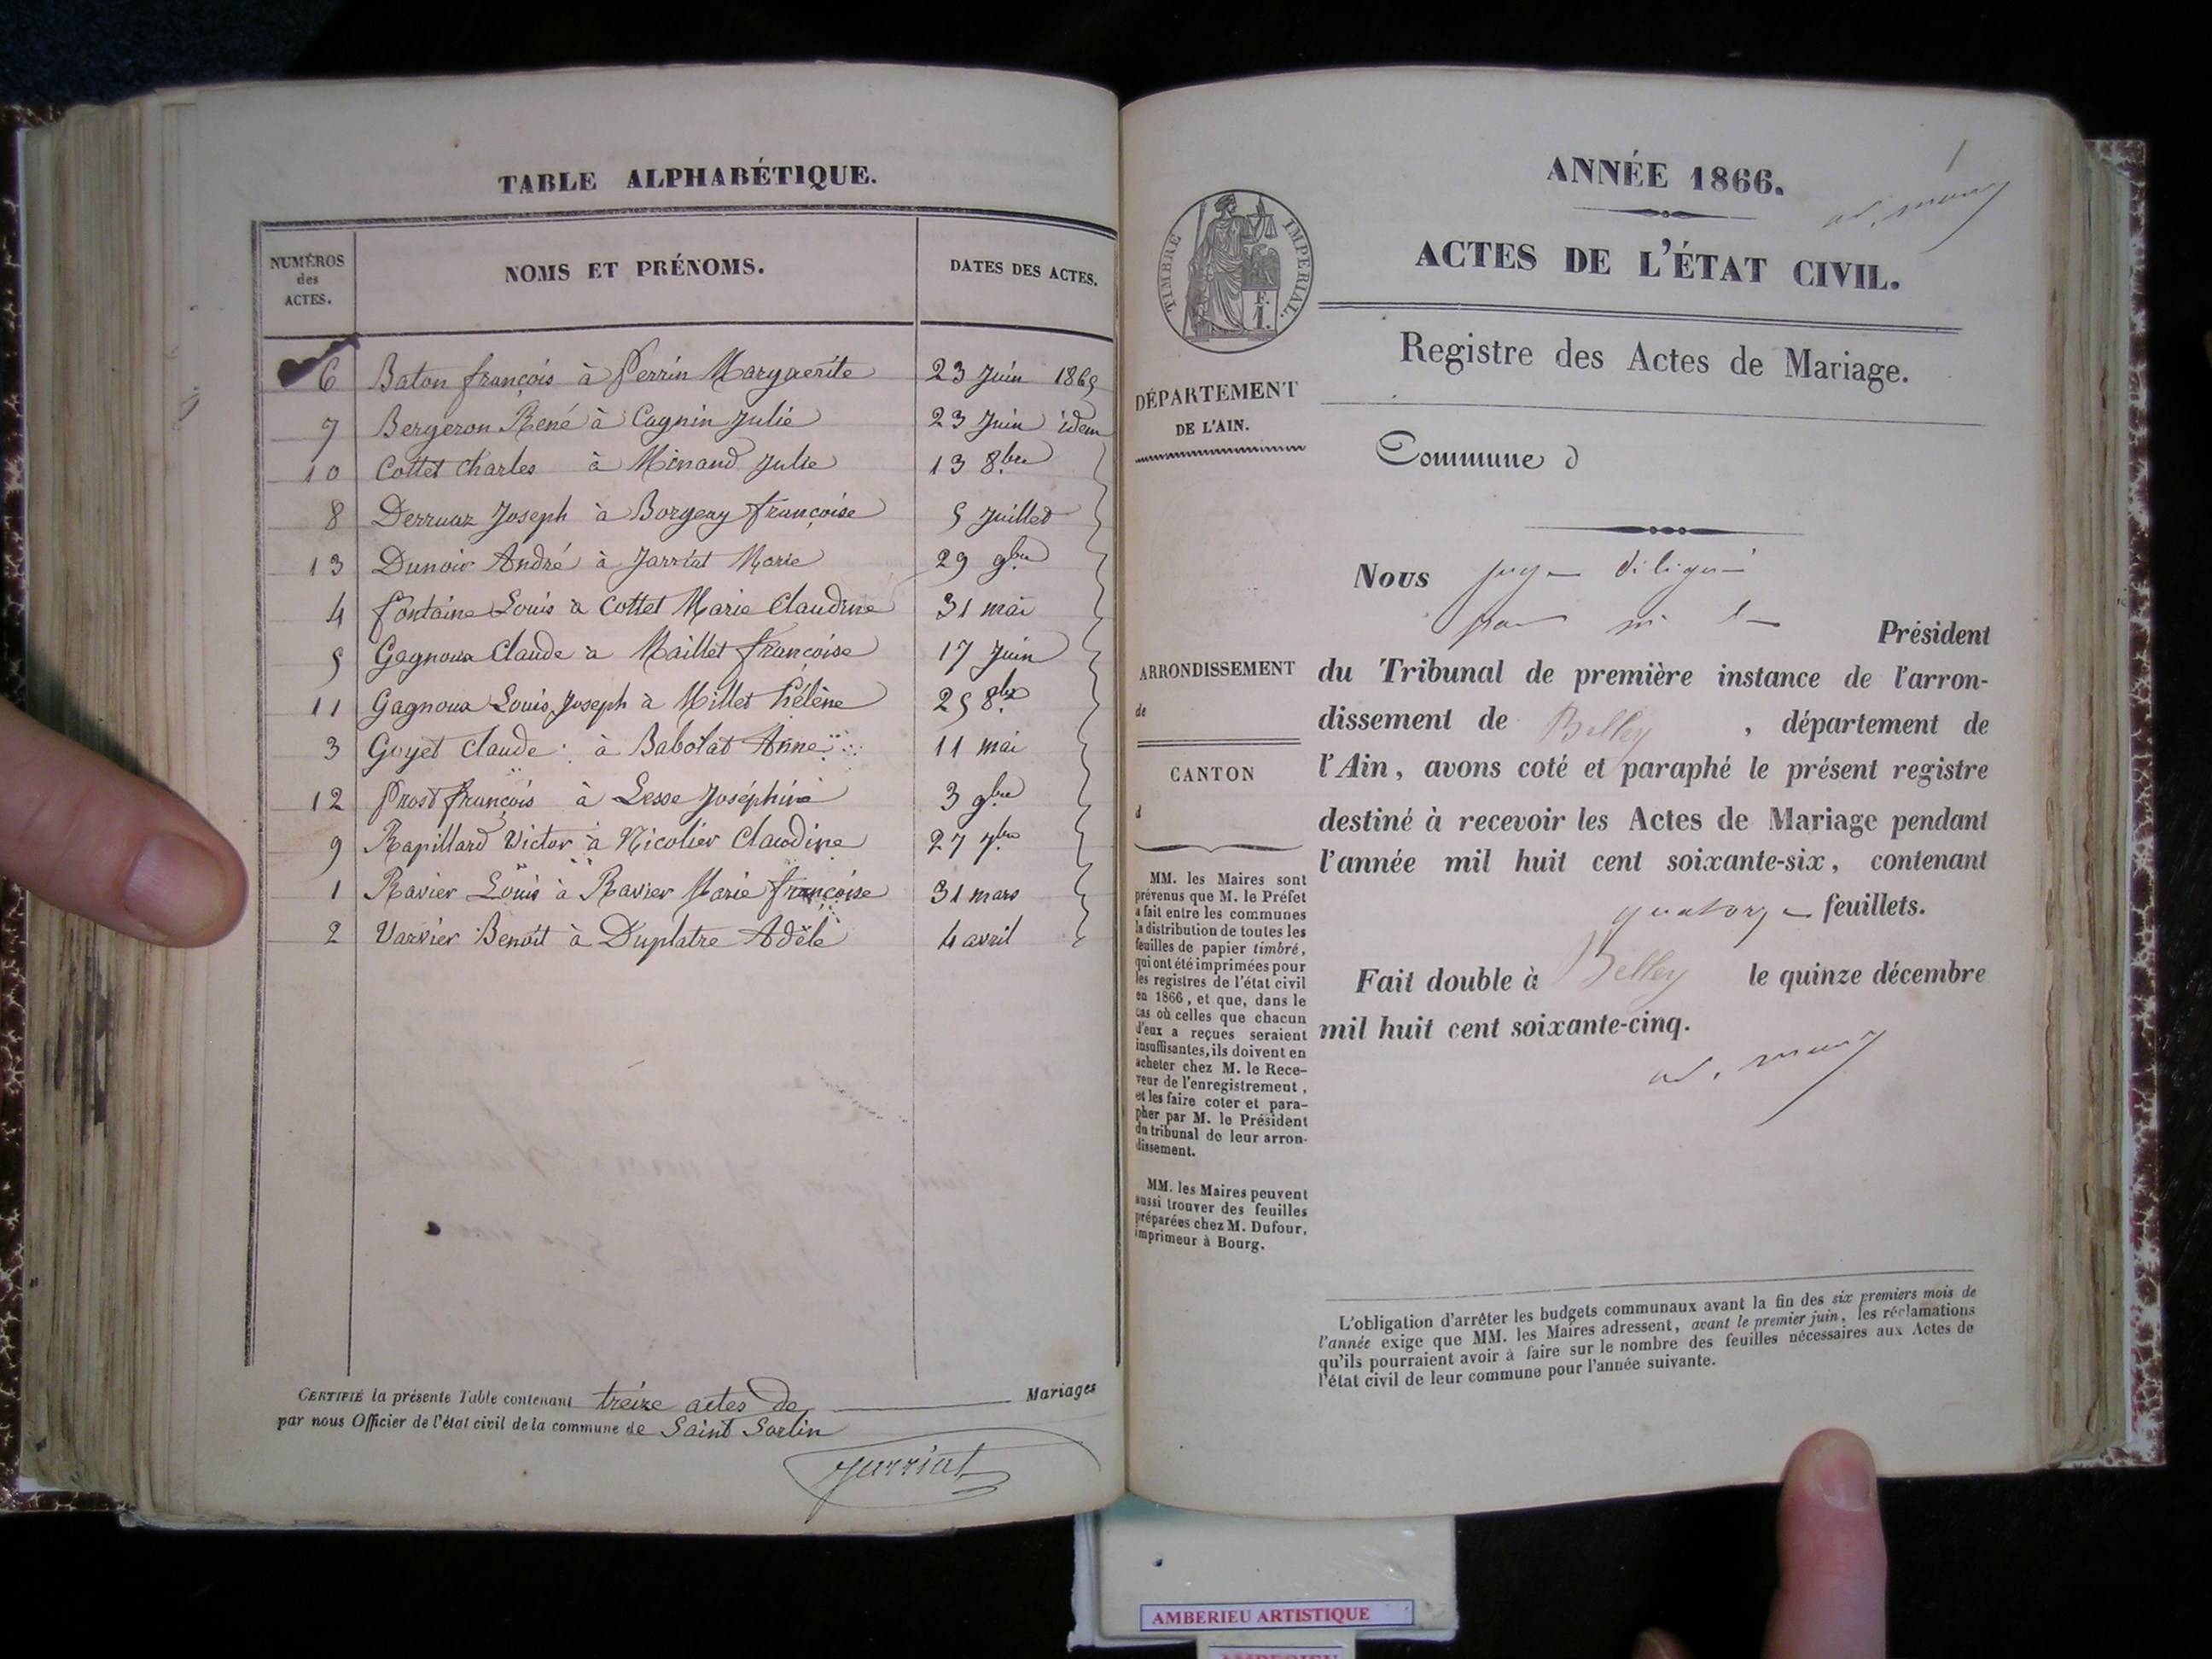 TABLE ALPHABÉTIQUE.
NUMÉROS des ACTES.
NOMS ET PRÉNOMS.
DATES DES ACTES.
6 Baton françois à Perrin Marguerite 23 Juin 1865
7 Bergeron René à Cagnin Julie 23 Juin idem
10 Cottet Charles à Minand Julie 13 8bre
8 Derruaz Joseph à Borgeay françoise 5 Juillet
13 Dunoir André à Jarriat Marie 29 9bre
4 fontaine Louis à Cottet Marie Claudine 31 mai
5 Gagnoux Claude à Maillet françoise 17 Juin
11 Gagnoux Louis Joseph à Millet hélène 25 8bre
3 Goyet Claude à Babolat Anne 11 mai
12 Prost françois à Lesse Joséphine 3 9bre
9 Rapillard Victor à Nicolier Claudine 27 7bre
1 Ravier Louis à Ravier Marie françoise 31 mars
2 Varvier Benoit à Duplatre Adèle 4 avril
CERTIFIÉ la présente Table contenant treize actes de Mariages
par nous Officier de l'état civil de la commune de Saint Sorlin
Jarriat
1
ANNÉE 1866.
TIMBRE IMPÉRIAL.
ACTES DE L'ÉTAT CIVIL.
Registre des Actes de Mariage.
DÉPARTEMENT
DE L'AIN.
Commune d
ARRONDISSEMENT
de
CANTON
d
MM. les Maires sont
prévenus que M. le Préfet
a fait entre les communes
la distribution de toutes les
feuilles de papier timbré,
qui ont été imprimées pour
les registres de l'état civil
en 1866, et que, dans le
cas où celles que chacun
d'eux a reçues seraient
insuffisantes, ils doivent en
acheter chez M. le Rece-
veur de l'enregistrement,
et les faire coter et para-
pher par M. le Président
du tribunal de leur arron-
dissement.
MM. les Maires peuvent
aussi trouver des feuilles
préparées chez M. Dufour,
imprimeur à Bourg.
Nous juge délégué
par M. le Président
du Tribunal de première instance de l'arron-
dissement de Belley, département de
l'Ain, avons coté et paraphé le présent registre
destiné à recevoir les Actes de Mariage pendant
l'année mil huit cent soixante-six, contenant
quatorze feuillets.
Fait double à Belley le quinze décembre
mil huit cent soixante-cinq.
L'obligation d'arrêter les budgets communaux avant la fin des six premiers mois de
l'année exige que MM. les Maires adressent, avant le premier juin, les réclamations
qu'ils pourraient avoir à faire sur le nombre des feuilles nécessaires aux Actes de
l'état civil de leur commune pour l'année suivante.
AMBERIEU ARTISTIQUE